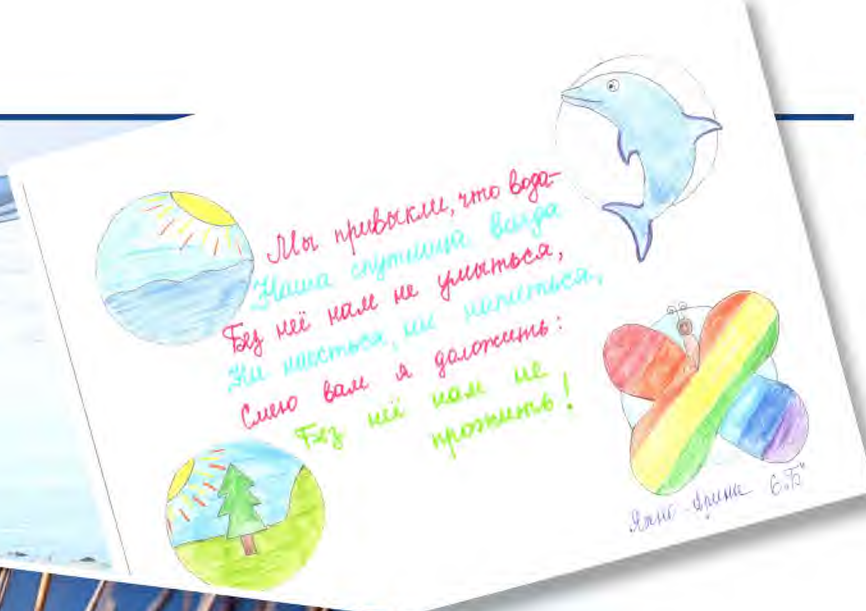 Мы привыкли, что вода-
Наша спутница всегда
Без неё нам не умыться,
Ни наесться, ни напиться,
Смею вам я доложить:
Без неё нам не
прожить!
Арина 6 "Б"